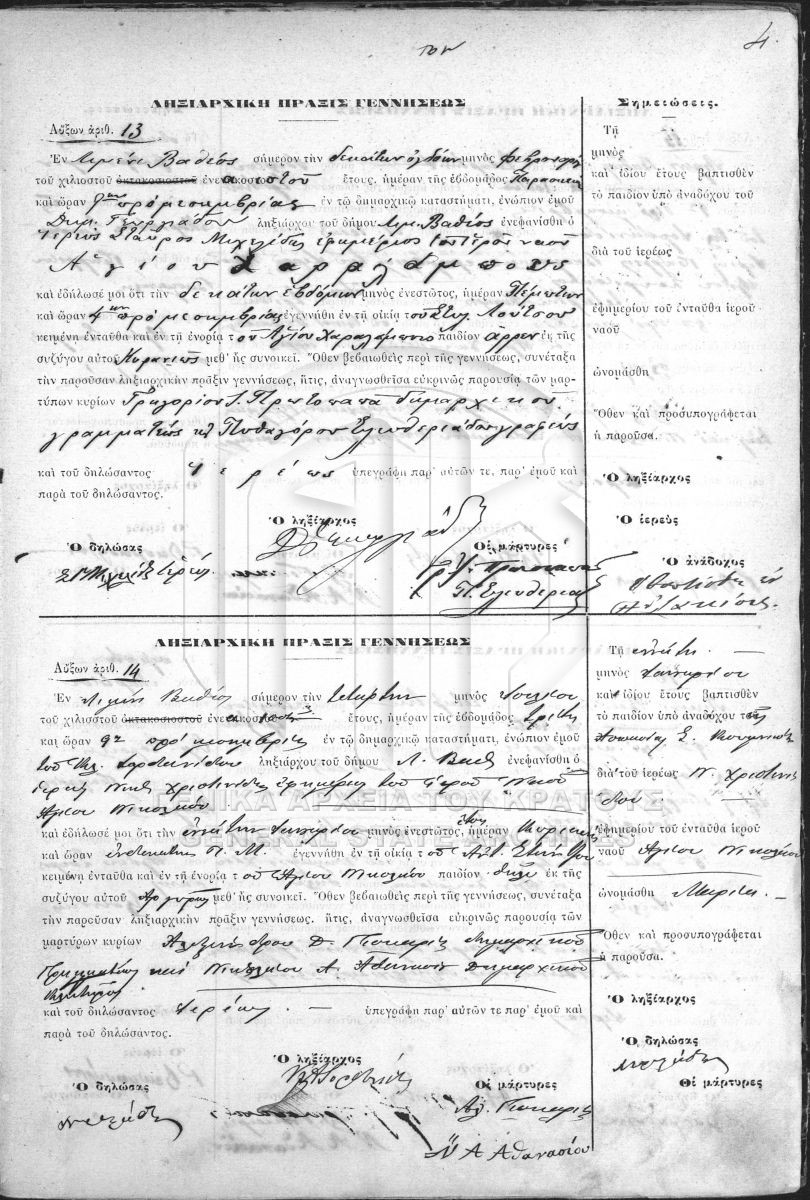 4.
τον
ΛΗΞΙΑΡΧΙΚΗ ΠΡΑΞΙΣ ΓΕΝΝΗΣΕΩΣ
Αὔξων ἀριθ. 13
Ἐν Λιμένι Βαθέος σήμερον τὴν δεκάτην ὀγδόην μηνὸς Φεβρουαρίου
τοῦ χιλιοστοῦ ὀκτακοσιοστοῦ ἐνενηκοστοῦ ἔτους, ἡμέραν τῆς ἑβδομάδος Παρασκευὴν
καὶ ὥραν πρὸ μεσημβρίας ἐν τῷ δημαρχικῷ καταστήματι, ἐνώπιον ἐμοῦ
Δημ. Γεωργιάδου ληξιάρχου τοῦ δήμου Λιμ. Βαθέος ἐνεφανίσθη ὁ
Ἱερεὺς Σταῦρος Μιχαηλίδης ἐφημέριος τοῦ ἱεροῦ ναοῦ
Ἁγίου Χαραλάμπους
καὶ ἐδήλωσέ μοι ὅτι τὴν δεκάτην ἑβδόμην μηνὸς ἐνεστῶτος, ἡμέραν Πέμπτην
καὶ ὥραν 4ην πρὸ μεσημβρίας ἐγεννήθη ἐν τῇ οἰκίᾳ τοῦ Στυλ. Λούτσου
κειμένῃ ἐνταῦθα καὶ ἐν τῇ ἐνορίᾳ τοῦ Ἁγίου Χαραλάμπους παιδίον ἄρρεν ἐκ τῆς
συζύγου αὐτοῦ μεθ' ἧς συνοικεῖ. Ὅθεν βεβαιωθεὶς περὶ τῆς γεννήσεως, συνέταξα
τὴν παροῦσαν ληξιαρχικὴν πρᾶξιν γεννήσεως, ἥτις, ἀναγνωσθεῖσα εὐκρινῶς παρουσίᾳ τῶν μαρ-
τύπων κυρίων Γρηγορίου Ι. Πρωτοπαπᾶ δημαρχικοῦ
γραμματέως κ Πυθαγόρου Ἐλευθεριάδου γραφέως
καὶ τοῦ δηλώσαντος ἱερέως ὑπεγράφη παρ' αὐτῶν τε, παρ' ἐμοῦ καὶ
παρὰ τοῦ δηλώσαντος.
Ὁ δηλώσας
Ὁ ληξίαρχος
Οἱ μάρτυρες
Π. Ἐλευθεριάδης
Σημειώσεις.
Τῇ
μηνὸς
καὶ ἰδίου ἔτους βαπτισθὲν
τὸ παιδίον ὑπὸ ἀναδόχου τοῦ
διὰ τοῦ ἱερέως
ἐφημερίου τοῦ ἐνταῦθα ἱεροῦ
ναοῦ
ὠνομάσθη
Ὅθεν καὶ προσυπογράφεται
ἡ παροῦσα.
Ὁ ληξίαρχος
Ὁ ἱερεὺς
Ὁ ἀνάδοχος
ΛΗΞΙΑΡΧΙΚΗ ΠΡΑΞΙΣ ΓΕΝΝΗΣΕΩΣ
Αὔξων ἀριθ. 14
Ἐν Λιμένι Βαθέος σήμερον τὴν τετάρτην μηνὸς Ἰουλίου
τοῦ χιλιοστοῦ ὀκτακοσιοστοῦ ἔτους, ἡμέραν τῆς ἑβδομάδος Τρίτην
καὶ ὥραν 9ην πρὸ μεσημβρίας ἐν τῷ δημαρχικῷ καταστήματι, ἐνώπιον ἐμοῦ
τοῦ ληξιάρχου τοῦ δήμου Λ. Βαθέος ἐνεφανίσθη ὁ
ἱερεὺς Νικ. Χριστινίδης ἐφημέριος τοῦ ἱεροῦ Ναοῦ
Ἁγίου Νικολάου
καὶ ἐδήλωσέ μοι ὅτι τὴν ἐνάτην Ἰανουαρίου μηνὸς ἐνεστῶτος, ἔτους ἡμέραν Κυριακὴν
καὶ ὥραν ἑνδεκάτην Π. Μ. ἐγεννήθη ἐν τῇ οἰκίᾳ τοῦ
κειμένῃ ἐνταῦθα καὶ ἐν τῇ ἐνορίᾳ τοῦ Ἁγίου Νικολάου παιδίον θῆλυ ἐκ τῆς
συζύγου αὐτοῦ Ἀργυρῆς μεθ' ἧς συνοικεῖ. Ὅθεν βεβαιωθεὶς περὶ τῆς γεννήσεως, συνέταξα
τὴν παροῦσαν ληξιαρχικὴν πρᾶξιν γεννήσεως. ἥτις, ἀναγνωσθεῖσα εὐκρινῶς παρουσίᾳ τῶν
μαρτύρων κυρίων Ἀλεξάνδρου Δ. δημαρχικοῦ
Γραμματέως καὶ Νικολάου Α. Ἀθανασίου Δημαρχικοῦ
Κλητῆρος
καὶ τοῦ δηλώσαντος ἱερέως ὑπεγράφη παρ' αὐτῶν τε παρ' ἐμοῦ καὶ
παρὰ τοῦ δηλώσαντος.
Ὁ δηλώσας
Ὁ ληξίαρχος
Οἱ μάρτυρες
Ν Α Ἀθανασίου
Τῇ ἐνάτῃ
μηνὸς Ἰανουαρίου
καὶ ἰδίου ἔτους βαπτισθὲν
τὸ παιδίον ὑπὸ ἀναδόχου τῆς
διὰ τοῦ ἱερέως Ν. Χριστινί
δου
ἐφημερίου τοῦ ἐνταῦθα ἱεροῦ
ναοῦ Ἁγίου Νικολάου
ὠνομάσθη Μαρία
Ὅθεν καὶ προσυπογράφεται
ἡ παροῦσα.
Ὁ ληξίαρχος
Ὁ δηλώσας
Οἱ μάρτυρες
ΓΕΝΙΚΑ ΑΡΧΕΙΑ ΤΟΥ ΚΡΑΤΟΥΣ
GENERAL STATE ARCHIVES